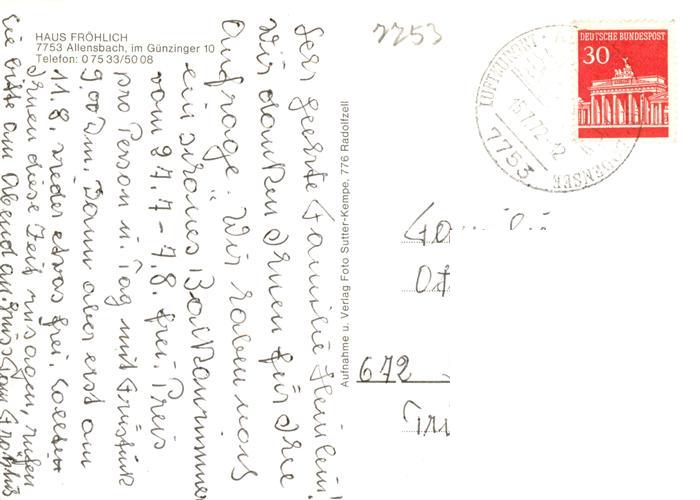 HAUS FRÖHLICH
7753 Allensbach, im Günzinger 10
Telefon: 0 75 33/50 08
7753
DEUTSCHE BUNDESPOST
30
LUFTKURORT
7753
BODENSEE
Sehr geehrte Familie
Wir danken Ihnen für Ihre
Anfrage. Wir haben noch
ein schönes Balkonzimmer
vom 24.7 - 7.8. frei. Preis
pro Person u. Tag mit Frühstück
9.00 DM. Dann aber erst am
11.8. wieder etwas frei. Sollten
Ihnen diese Zeit zusagen, rufen
Sie bitte am Abend an.
Aufnahme u. Verlag Foto Sutter-Kempe, 776 Radolfzell
672